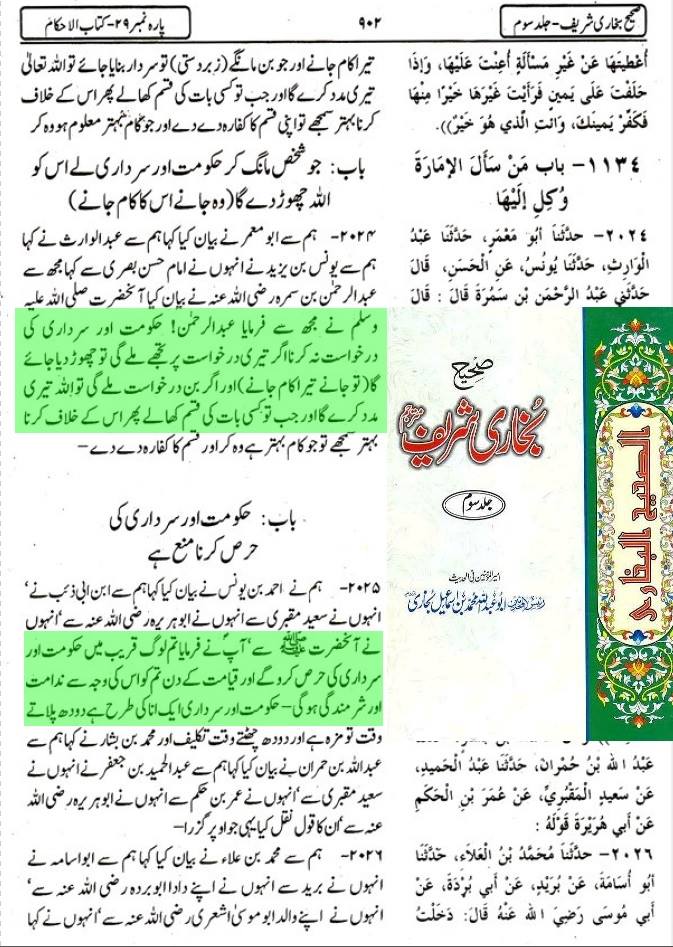 صحیح بخاری شریف - جلد سوم
۹۰۲
پارہ نمبر ۲۹ - کتاب الاحکام
أُعْطِيتَهَا عَنْ غَيْرِ مَسْأَلَةٍ أُعِنْتَ عَلَيْهَا، وَإِذَا
حَلَفْتَ عَلَى يَمِينٍ فَرَأَيْتَ غَيْرَهَا خَيْرًا مِنْهَا
فَكَفِّرْ يَمِينَكَ، وَائْتِ الَّذِي هُوَ خَيْرٌ)).
١١٣٤- باب مَنْ سَأَلَ الإِمَارَةَ
وُكِلَ إِلَيْهَا
٢٠٢٤- حدَّثَنَا أَبُو مَعْمَرٍ، حَدَّثَنَا عَبْدُ
الْوَارِثِ، حَدَّثَنَا يُونُسُ، عَنِ الْحَسَنِ، قَالَ
حَدَّثَنِي عَبْدُ الرَّحْمَنِ بْنُ سَمُرَةَ قَالَ: قَالَ
تیرا کام جانے اور جو بن مانگے (زبردستی) تو سردار بنایا جائے تو اللہ تعالیٰ
تیری مدد کرے گا اور جب تو کسی بات کی قسم کھالے پھر اس کے خلاف
کرنا بہتر سمجھے تو اپنی قسم کا کفارہ دے دے اور جو کام بہتر معلوم ہو وہ کر
باب: جو شخص مانگ کر حکومت اور سرداری لے اس کو
اللہ چھوڑ دے گا (وہ جانے اس کا کام جانے)
۲۰۲۴- ہم سے ابو معمر نے بیان کیا کہا ہم سے عبدالوارث نے کہا
ہم سے یونس بن یزید نے انہوں نے امام حسن بصری سے کہا مجھ سے
عبدالرحمٰن بن سمرہ رضی اللہ عنہ نے بیان کیا آنحضرت صلی اللہ علیہ
وسلم نے مجھ سے فرمایا عبدالرحمٰن! حکومت اور سرداری کی
درخواست نہ کرنا اگر تیری درخواست پر تجھے ملے گی تو چھوڑ دیا جائے
گا (تو جانے تیرا کام جانے) اور اگر بن درخواست ملے گی تو اللہ تیری
مدد کرے گا اور جب تو کسی بات کی قسم کھالے پھر اس کے خلاف کرنا
بہتر سمجھے تو جو کام بہتر ہے وہ کر اور قسم کا کفارہ دے دے-
باب: حکومت اور سرداری کی
حرص کرنا منع ہے
۲۰۲۵- ہم نے احمد بن یونس نے بیان کیا کہا ہم سے ابن ابی ذئب نے
انہوں نے سعید مقبری سے انہوں نے ابو ہریرہ رضی اللہ عنہ سے، انہوں
نے آنحضرت ﷺ سے، آپ نے فرمایا تم لوگ قریب میں حکومت اور
سرداری کی حرص کرو گے اور قیامت کے دن تم کو اس کی وجہ سے ندامت
اور شرمندگی ہوگی- حکومت اور سرداری ایک انا کی طرح ہے دودھ پلاتے
وقت تو مزہ ہے اور دودھ چھٹتے وقت تکلیف اور محمد بن بشار نے کہا ہم سے
عبداللہ بن حمران نے بیان کیا کہا ہم سے عبدالحمید بن جعفر نے انہوں نے
سعید مقبری سے، انہوں نے عمر بن حکم سے انہوں نے ابو ہریرہ رضی اللہ
عنہ سے، ان کا قول نقل کیا یہی جو اوپر گزرا-
۲۰۲۶- ہم سے محمد بن علاء نے بیان کیا کہا ہم سے ابواسامہ نے
انہوں نے برید سے انہوں نے اپنے دادا ابوبردہ رضی اللہ عنہ سے،
انہوں نے اپنے والد ابو موسیٰ اشعری رضی اللہ عنہ سے، انہوں نے کہا
صحیح
بخاری شریف
مترجم
جلد سوم
امیر المؤمنین فی الحدیث
ابو عبداللہ محمد بن اسماعیل بخاری
الصحيح البخاري
عَبْدُ اللهِ بْنُ حُمْرَانَ، حَدَّثَنَا عَبْدُ الْحَمِيدِ،
عَنْ سَعِيدٍ الْمَقْبُرِيِّ، عَنْ عُمَرَ بْنِ الْحَكَمِ
عَنْ أَبِي هُرَيْرَةَ قَوْلَهُ:
٢٠٢٦- حدَّثَنَا مُحَمَّدُ بْنُ الْعَلَاءِ، حَدَّثَنَا
أَبُو أُسَامَةَ، عَنْ بُرَيْدٍ، عَنْ أَبِي بُرْدَةَ، عَنْ
أَبِي مُوسَى رَضِيَ اللهُ عَنْهُ قَالَ: دَخَلْتُ